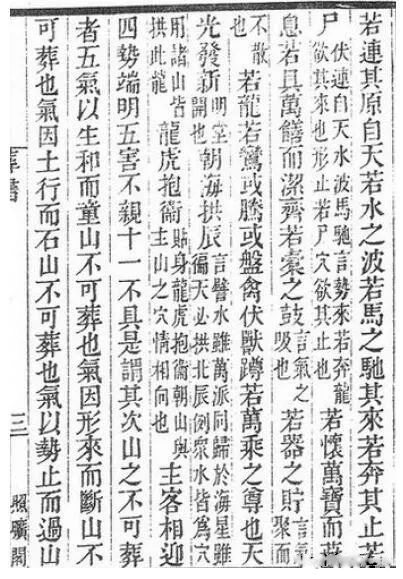 若連其原自天若水之波若馬之馳其來若奔其止若
尸伏連自天水波馬馳言勢來若奔龍欲其來也形止若尸穴欲其止也若懷萬寶而燕
息若具萬饍而潔齊若橐之鼓言氣之吸也若器之貯言氣聚而
不散若龍若鸞或騰或盤禽伏獸蹲若萬乘之尊也天
光發新明堂開也朝海拱辰言譬水雖萬派同歸於海星雖徧天必拱北辰例眾水皆爲穴
用諸山皆拱此龍龍虎抱衛貼身龍虎抱衛朝山與主山之穴情相向也主客相迎
四勢端明五害不親十一不具是謂其次山之不可葬
者五氣以生和而童山不可葬也氣因形來而斷山不
可葬也氣因土行而石山不可葬也氣以勢止而過山
三
照曠閣